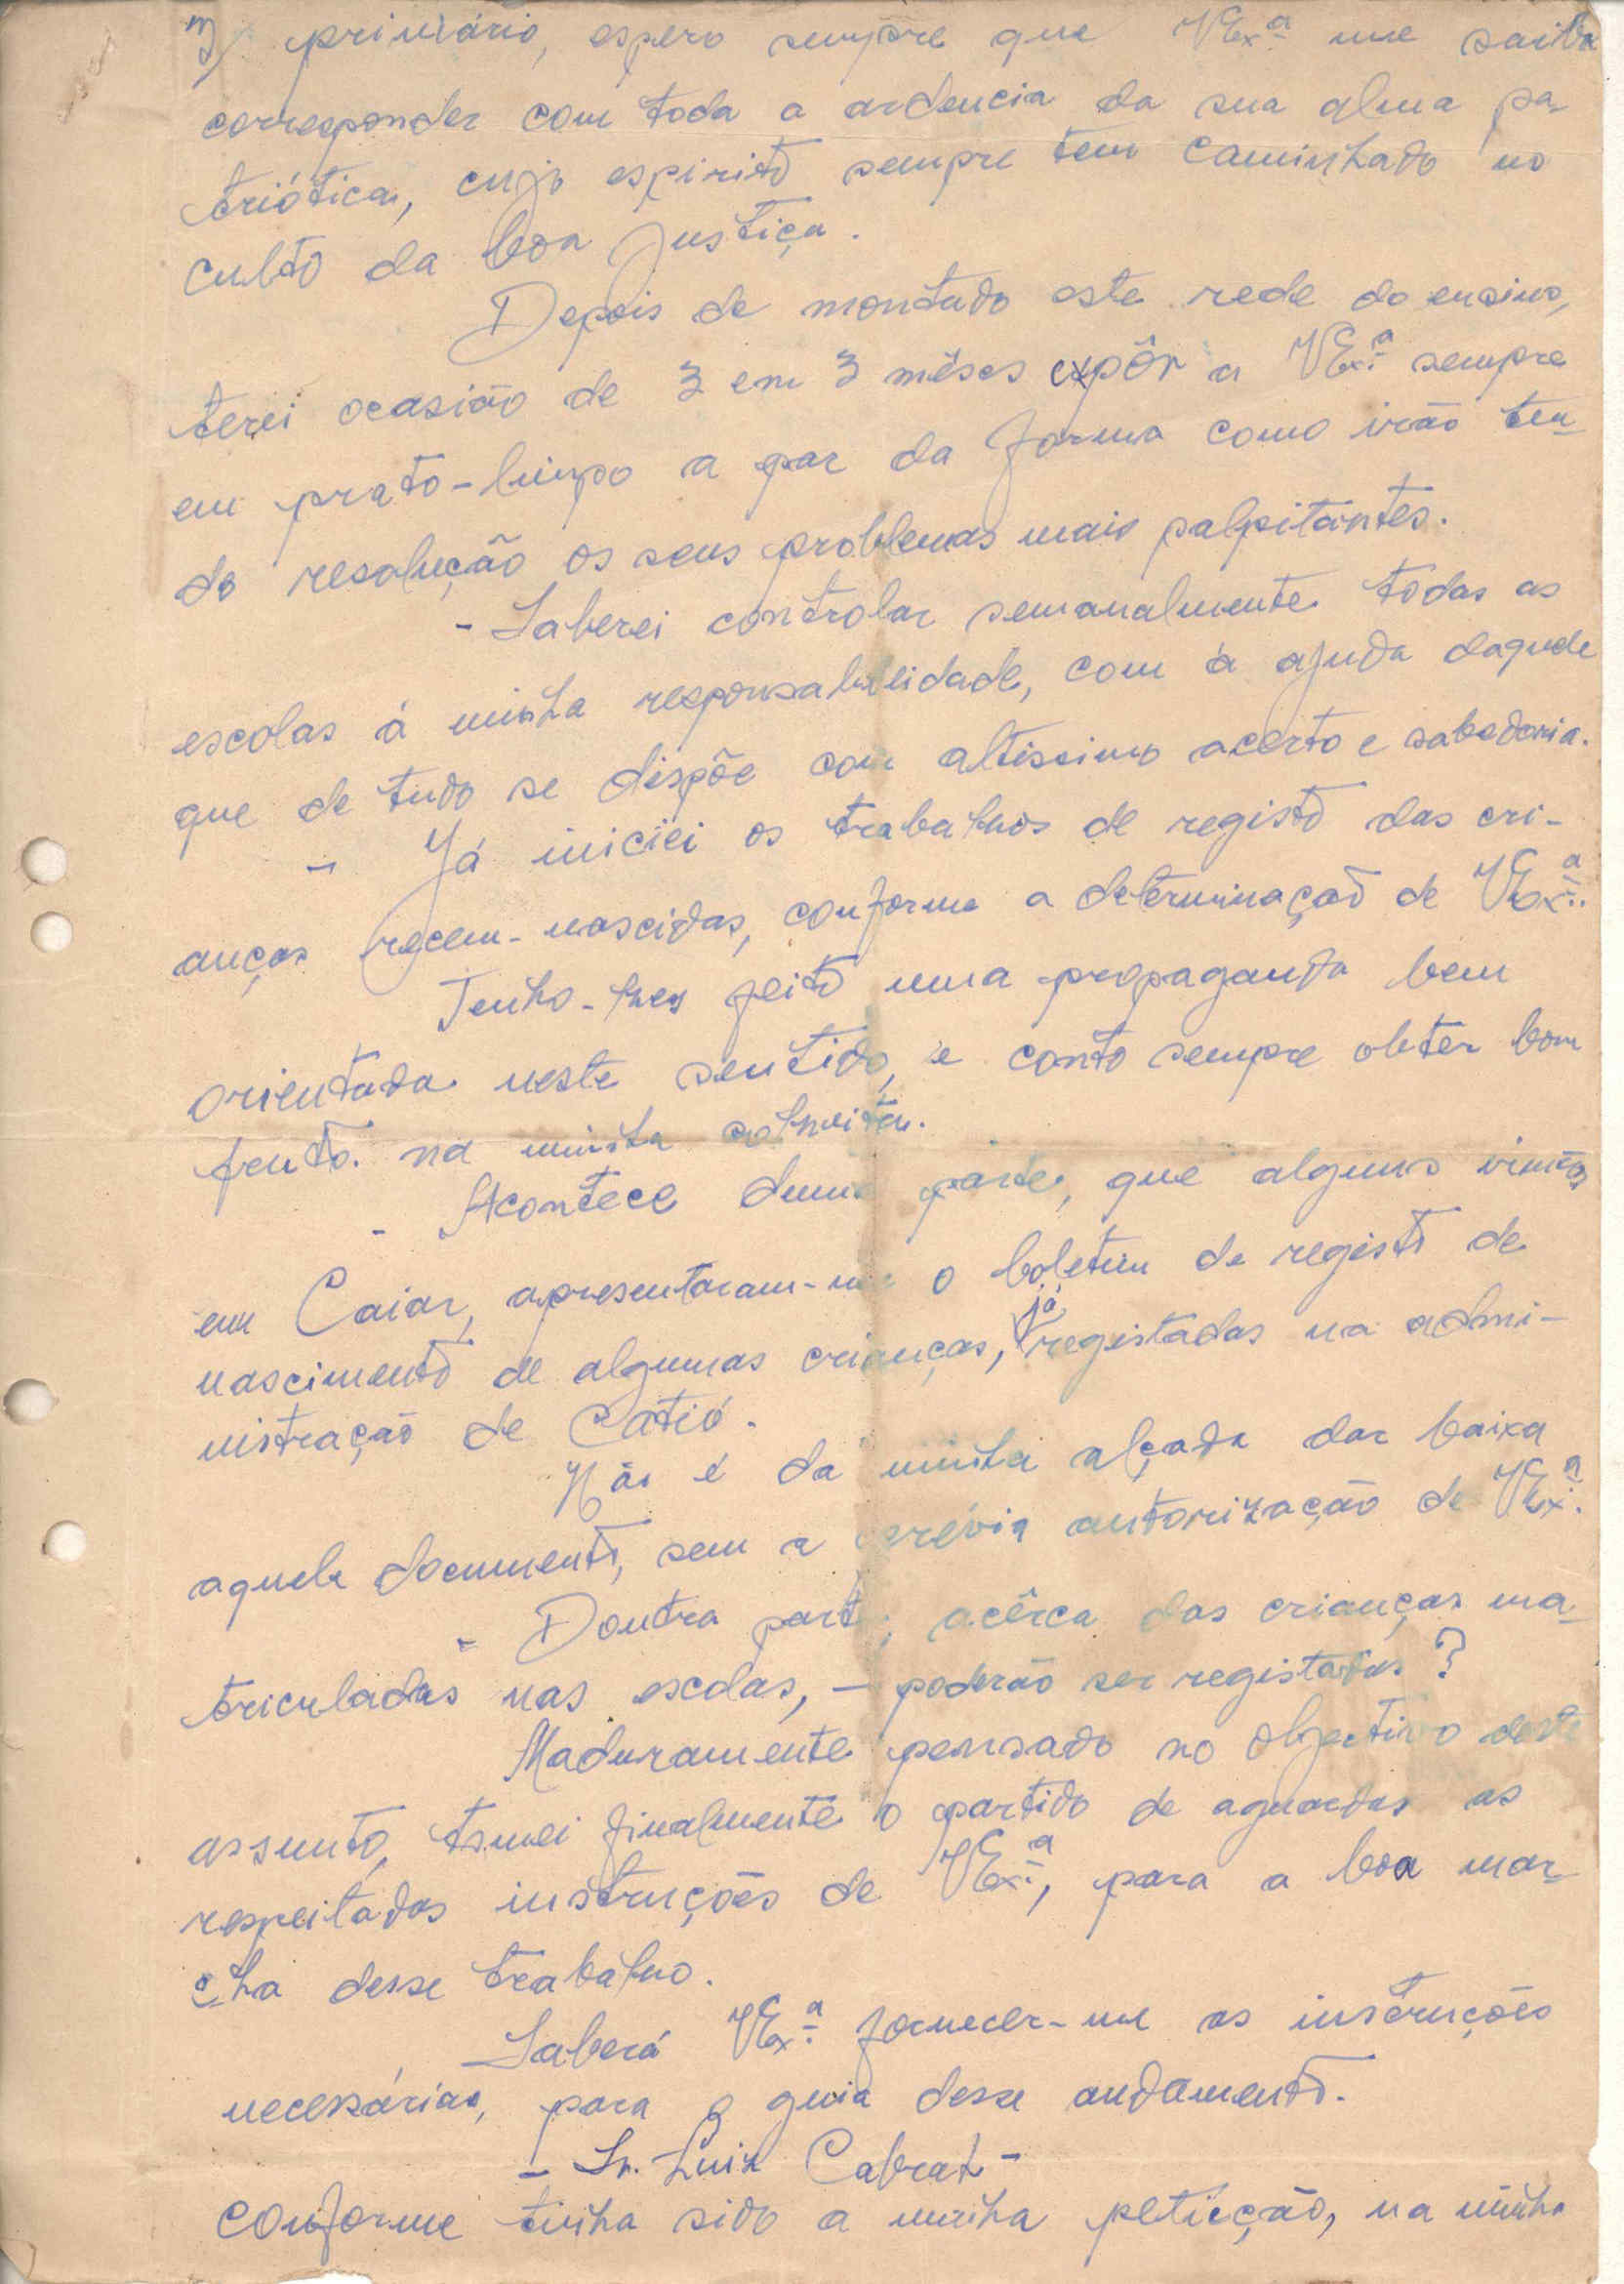 primário, espero sempre que VExª me saiba
corresponder com toda a ardencia da sua alma pa
triótica, cujo espirito sempre tem caminhado no
culto da boa justiça.
Depois de montado este rede do ensino,
terei ocasião de 3 em 3 mêses expôr a VExª sempre
em prato-limpo a par da forma como irão ten-
do resolução os seus problemas mais palpitantes.
- Saberei controlar semanalmente todas as
escolas á minha responsabilidade, com a ajuda daquele
que de tudo se dispõe com altissimo acerto e sabedoria.
- Já iniciei os trabalhos de registo das cri-
anças recem-nascidas, conforme a determinação de VExª.
Tenho-lhes feito uma propaganda bem
orientada neste sentido, e conto sempre obter bom
fruto. na minha colheita.
- Acontece duma parte, que alguns vindos
em Caiar, apresentaram-me o boletim de registo de
nascimento de algumas crianças, já registadas na admi-
nistração de Catió.
Não é da minha alçada dar baixa
aquele documento, sem a prévia autorização de VExª.
- Doutra parte, acêrca das crianças ma-
triculadas nas escolas, - poderão ser registadas?
Maduramente pensado no objectivo deste
assunto, tomei finalmente o partido de aguardar as
respeitadas instruções de VExª, para a boa mar-
cha desse trabalho.
Saberá VExª fornecer-me as instruções
necessárias, para o guia desse andamento.
- Sr. Luiz Cabral -
conforme tinha sido a minha peticção, na minha